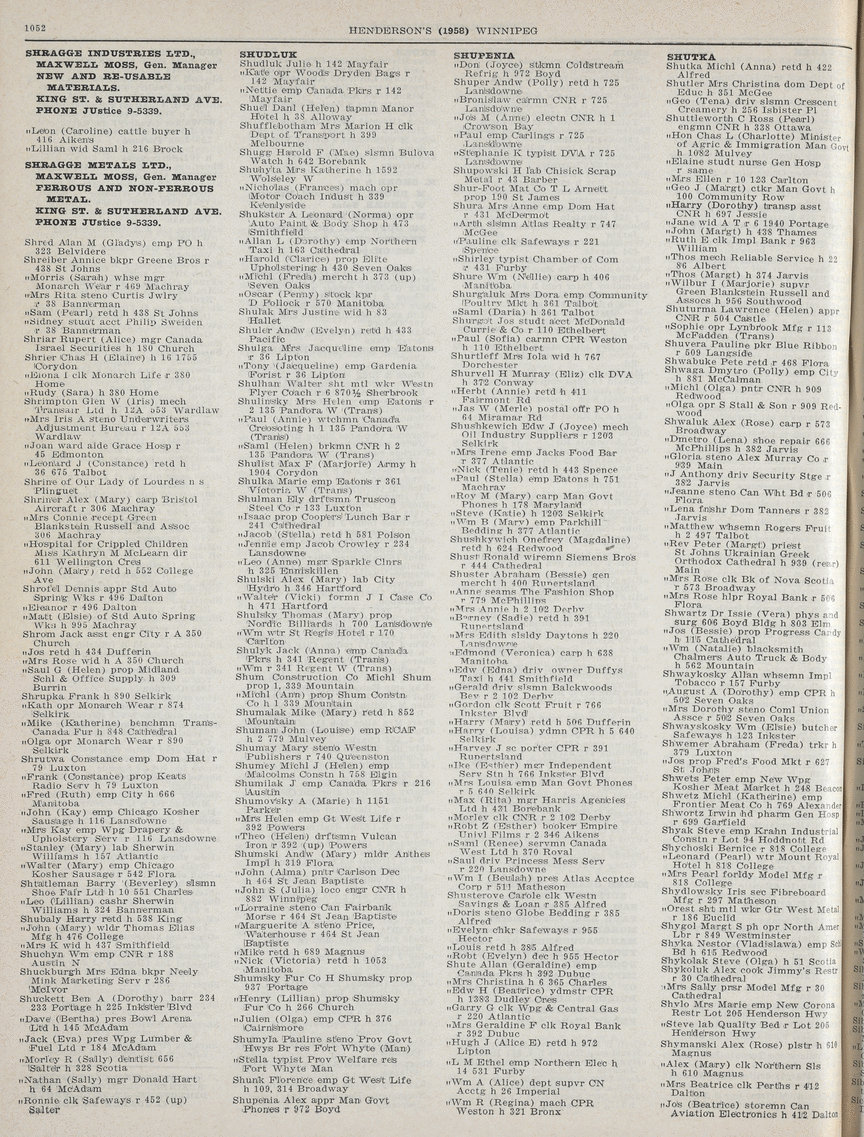 1052
HENDERSON'S (1958) WINNIPEG
SHRAGGE INDUSTRIES LTD.,
MAXWELL MOSS, Gen. Manager
NEW AND RE-USABLE
MATERIALS.
KING ST. & SUTHERLAND AVE.
PHONE JUstice 9-5339.
"Leon (Caroline) cattle buyer h
416 Aikens
"Lillian wid Saml h 216 Brock
SHRAGGE METALS LTD.,
MAXWELL MOSS, Gen. Manager
FERROUS AND NON-FERROUS
METAL.
KING ST. & SUTHERLAND AVE.
PHONE JUstice 9-5339.
Shred Allan M (Gladys) emp PO h
323 Belvidere
Shreiber Annice bkpr Greene Bros r
438 St Johns
"Morris (Sarah) whse mgr
Monarch Wear r 469 Machray
"Mrs Rita steno Curtis Jwlry
r 38 Bannerman
"Sam (Pearl) retd h 438 St Johns
"Sidney studt acct Philip Sweiden
r 38 Bannerman
Shriar Rupert (Alice) mgr Canada
Israel Securities h 180 Church
Shrier Chas H (Elaine) h 16 1755
Corydon
"Eiona I clk Monarch Life r 380
Home
"Rudy (Sara) h 380 Home
Shrimpton Glen W (Iris) mech
Transair Ltd h 12A 553 Wardlaw
"Mrs Iris A steno Underwriters
Adjustment Bureau r 12A 553
Wardlaw
"Joan ward aide Grace Hosp r
45 Edmonton
"Leonard J (Constance) retd h
36 675 Talbot
Shrine of Our Lady of Lourdes n s
Plinguet
Shriner Alex (Mary) carp Bristol
Aircraft r 306 Machray
"Mrs Connie recept Green
Blankstein Russell and Assoc
306 Machray
"Hospital for Crippled Children
Miss Kathryn M McLearn dir
611 Wellington Cres
"John (Mary) retd h 552 College
Ave
Shrofel Dennis appr Std Auto
Spring Wks r 496 Dalton
"Eleanor r 496 Dalton
"Matt (Elsie) of Std Auto Spring
Wks h 995 Machray
Shrom Jack asst engr City r A 350
Church
"Jos retd h 434 Dufferin
"Mrs Rose wid h A 350 Church
"Saul G (Helen) prop Midland
Schl & Office Supply h 309
Burrin
Shrupka Frank h 890 Selkirk
"Kath opr Monarch Wear r 874
Selkirk
"Mike (Katherine) benchmn Trans-
Canada Fur h 848 Cathedral
"Olga opr Monarch Wear r 890
Selkirk
Shrutwa Constance emp Dom Hat r
79 Luxton
"Frank (Constance) prop Keats
Radio Serv h 79 Luxton
"Fred (Ruth) emp City h 666
Manitoba
"John (Kay) emp Chicago Kosher
Sausage h 116 Lansdowne
"Mrs Kay emp Wpg Drapery &
Upholstery Serv r 116 Lansdowne
"Stanley (Mary) lab Sherwin
Williams h 157 Atlantic
"Walter (Mary) emp Chicago
Kosher Sausage r 542 Flora
Shtaitleman Barry (Beverley) slsmn
Shoe Fair Ltd h 10 551 Charles
"Leo (Lillian) cashr Sherwin
Williams h 324 Bannerman
Shubaly Harry retd h 538 King
"John (Mary) wldr Thomas Elias
Mfg h 476 College
"Mrs K wid h 437 Smithfield
Shuchyn Wm emp CNR r 188
Austin N
Shuckburgh Mrs Edna bkpr Neely
Mink Marketing Serv r 286
McIvor
Shuckett Ben A (Dorothy) barr 234
233 Portage h 225 Inkster Blvd
"Dave (Bertha) pres Bowl Arena
Ltd h 145 McAdam
"Jack (Eva) pres Wpg Lumber &
Fuel Ltd r 184 McAdam
"Morley R (Sally) dentist 656
Salter h 328 Scotia
"Nathan (Sally) mgr Donald Hart
h 64 McAdam
"Ronnie clk Safeways r 452 (up)
Salter
SHUDLUK
Shudluk Julie h 142 Mayfair
"Kate opr Woods Dryden Bags r
142 Mayfair
"Nettie emp Canada Pkrs r 142
Mayfair
Shuel Danl (Helen) tapmn Manor
Hotel h 38 Alloway
Shufflebotham Mrs Marion H clk
Dept of Transport h 399
Melbourne
Shugg Harold F (Mae) slsmn Bulova
Watch h 642 Borebank
Shuhyta Mrs Katherine h 1592
Wolseley W
"Nicholas (Frances) mach opr
Motor Coach Indust h 339
Keenlyside
Shukster A Leonard (Norma) opr
Auto Paint & Body Shop h 473
Smithfield
"Allan L (Dorothy) emp Northern
Taxi h 163 Cathedral
"Harold (Clarice) prop Elite
Upholstering h 430 Seven Oaks
"Michl (Freda) mercht h 373 (up)
Seven Oaks
"Oscar (Penny) stock kpr
D Pollock r 570 Manitoba
Shulak Mrs Justine wid h 83
Hallet
Shuler Andw (Evelyn) retd h 433
Pacific
Shulga Mrs Jacqueline emp Eatons
r 36 Lipton
"Tony (Jacqueline) emp Gardenia
Forist r 36 Lipton
Shulhan Walter sht mtl wkr Westn
Flyer Coach r 6 870½ Sherbrook
Shulinsky Mrs Helen emp Eaton's r
2 135 Pandora W (Trans)
"Paul (Annie) wtchmn Canada
Creosoting h 1 135 Pandora W
(Trans)
"Saml (Helen) brkmn CNR h 2
135 Pandora W (Trans)
Shulist Max F (Marjorie) Army h
1904 Corydon
Shulka Marie emp Eatons r 361
Victoria W (Trans)
Shulman Ely drftsmn Truscon
Steel Co r 133 Luxton
"Isaac prop Coopers Lunch Bar r
241 Cathedral
"Jacob (Stella) retd h 581 Polson
"Jennie emp Jacob Crowley r 234
Lansdowne
"Leo (Anne) mgr Sparkle Clnrs
h 325 Enniskillen
Shulski Alex (Mary) lab City
Hydro h 346 Hartford
"Walter (Vicki) formn J I Case Co
h 471 Hartford
Shulsky Thomas (Mary) prop
Nordic Billiards h 700 Lansdowne
"Wm wtr St Regis Hotel r 170
Carlton
Shulyk Jack (Anna) emp Canada
Pkrs h 341 Regent (Trans)
"Wm r 341 Regent W (Trans)
Shum Construction Co Michl Shum
prop 1, 339 Mountain
"Michl (Ann) prop Shum Constn
Co h 1 339 Mountain
Shumalak Mike (Mary) retd h 852
Mountain
Shuman John (Louise) emp RCAF
h 2 779 Mulvey
Shumay Mary steno Westn
Publishers r 740 Queenston
Shumey Michl J (Helen) emp
Malcolms Constn h 758 Elgin
Shumilak J emp Canada Pkrs r 216
Austin
Shumovsky A (Marie) h 1151
Parker
"Mrs Helen emp Gt West Life r
392 Powers
"Theo (Helen) drftsmn Vulcan
Iron r 392 (up) Powers
Shumski Andw (Mary) mldr Anthes
Impl h 319 Flora
"John (Alma) pntr Carlson Dec
h 464 St Jean Baptiste
"John S (Julia) loco engr CNR h
882 Winnipeg
"Lorraine steno Can Fairbank
Morse r 464 St Jean Baptiste
"Marguerite A steno Price,
Waterhouse r 464 St Jean
Baptiste
"Mike retd h 689 Magnus
"Nick (Victoria) retd h 1053
Manitoba
Shumsky Fur Co H Shumsky prop
937 Portage
"Henry (Lillian) prop Shumsky
Fur Co h 266 Church
"Julien (Olga) emp CPR h 376
Cairnsmore
Shumyla Pauline steno Prov Govt
Hwys Br res Fort Whyte (Man)
"Stella typist Prov Welfare res
Fort Whyte Man
Shunk Florence emp Gt West Life
h 109, 314 Broadway
Shupenia Alex appr Man Govt
Phones r 972 Boyd
SHUPENIA
"Don (Joyce) stkmn Coldstream
Refrig h 972 Boyd
Shuper Andw (Polly) retd h 725
Lansdowne
"Bronislaw carmn CNR r 725
Lansdowne
"Jos M (Anne) electn CNR h 1
Crowson Bay
"Paul emp Carlings r 725
Lansdowne
"Stephanie K typist DVA r 725
Lansdowne
Shupowski H lab Chisick Scrap
Metal r 43 Barber
Shur-Foot Mat Co T L Arnett
prop 190 St James
Shura Mrs Anne emp Dom Hat
r 431 McDermot
"Arth slsmn Atlas Realty r 747
McGee
"Pauline clk Safeways r 221
Spence
"Shirley typist Chamber of Com
r 431 Furby
Shure Wm (Nellie) carp h 406
Manitoba
Shurgaluk Mrs Dora emp Community
Poultry Mkt h 361 Talbot
"Saml (Daria) h 361 Talbot
Shurgot Jos studt acct McDonald
Currie & Co r 110 Ethelbert
"Paul (Sofia) carmn CPR Weston
h 110 Ethelbert
Shurtleff Mrs Iola wid h 767
Dorchester
Shurvell H Murray (Eliz) clk DVA
h 372 Conway
"Herbt (Annie) retd h 411
Fairmont Rd
"Jas W (Merle) postal offr PO h
64 Miramar Rd
Shushkewich Edw J (Joyce) mech
Oil Industry Suppliers r 1203
Selkirk
"Mrs Irene emp Jacks Food Bar
r 377 Atlantic
"Nick (Tenie) retd h 443 Spence
"Paul (Stella) emp Eatons h 751
Machray
"Roy M (Mary) carp Man Govt
Phones h 178 Maryland
"Steve (Katie) h 1203 Selkirk
"Wm B (Mary) emp Parkhill
Bedding h 377 Atlantic
Shushkywich Onefrey (Magdaline)
retd h 624 Redwood
Shust Ronald wiremn Siemens Bros
r 444 Cathedral
Shuster Abraham (Bessie) gen
mercht h 400 Rupertsland
"Anne seams The Fashion Shop
r 779 McPhillips
"Mrs Annie h 2 102 Derby
"Barney (Sadie) retd h 391
Rupertsland
"Mrs Edith slsldy Daytons h 220
Lansdowne
"Edmond (Veronica) carp h 638
Manitoba
"Edw (Edna) driv owner Duffys
Taxi h 441 Smithfield
"Gerald driv slsmn Balckwoods
Bev r 2 102 Derby
"Gordon clk Scott Fruit r 766
Inkster Blvd
"Harry (Mary) retd h 506 Dufferin
"Harry (Louisa) ydmn CPR h 5 640
Selkirk
"Harvey J sc porter CPR r 391
Rupertsland
"Ike (Esther) mgr Independent
Serv Stn h 766 Inkster Blvd
"Mrs Louisa emp Man Govt Phones
r 5 640 Selkirk
"Max (Rita) mgr Harris Agencies
Ltd h 431 Borebank
"Morley clk CNR r 2 102 Derby
"Robt Z (Esther) booker Empire
Univl Films r 2 346 Aikens
"Saml (Renee) servmn Canada
West Ltd h 370 Royal
"Saul driv Princess Mess Serv
r 220 Lansdowne
"Wm I (Beulah) pres Atlas Accptce
Corp r 511 Matheson
Shusterove Carole clk Westn
Savings & Loan r 385 Alfred
"Doris steno Globe Bedding r 385
Alfred
"Evelyn chkr Safeways r 955
Hector
"Louis retd h 385 Alfred
"Robt (Evelyn) dec h 955 Hector
Shute Allan (Geraldine) emp
Canada Pkrs h 392 Dubuc
"Mrs Christina h 6 365 Carles
"Edw H (Beatrice) ydmstr CPR
h 1383 Dudley Cres
"Garry G clk Wpg & Central Gas
r 220 Atlantic
"Mrs Geraldine F clk Royal Bank
r 392 Dubuc
"Hugh J (Alice E) retd h 972
Lipton
"L M Ethel emp Northern Elec h
14 531 Furby
"Wm A (Alice) dept supvr CN
Acctg h 26 Imperial
"Wm R (Regina) mach CPR
Weston h 321 Bronx
SHUTKA
Shutka Michl (Anna) retd h 422
Alfred
Shutler Mrs Christina dom Dept of
Educ h 351 McGee
"Geo (Tena) driv slsmn Crescent
Creamery h 256 Isbister Pl
Shuttleworth C Ross (Pearl)
engmn CNR h 338 Ottawa
"Hon Chas L (Charlotte) Minister
of Agric & Immigration Man Govt
h 1082 Mulvey
"Elaine studt nurse Gen Hosp
r same
"Mrs Ellen r 10 123 Carlton
"Geo J (Margt) ctkr Man Govt h
100 Community Row
"Harry (Dorothy) transp asst
CNR h 697 Jessie
"Jane wid A T r 6 1940 Portage
"John (Margt) h 438 Thames
"Ruth E clk Impl Bank r 963
William
"Thos mech Reliable Service h 22
86 Albert
"Thos (Margt) h 374 Jarvis
"Wilbur I (Marjorie) supvr
Green Blankstein Russell and
Assocs h 956 Southwood
Shuturma Lawrence (Helen) appr
CNR r 504 Castle
"Sophie opr Lynbrook Mfg r 113
McFadden (Trans)
Shuvera Pauline pkr Blue Ribbon
r 509 Langside
Shwabuke Pete retd r 468 Flora
Shwaga Dmytro (Polly) emp City
h 881 McCalman
"Michl (Olga) pntr CNR h 909
Redwood
"Olga opr S Stall & Son r 909 Red-
wood
Shwaluk Alex (Rose) carp r 573
Broadway
"Dmetro (Lena) shoe repair 666
McPhillips h 382 Jarvis
"Gloria steno Alex Murray Co r
939 Main
"J Anthony driv Security Stge r
382 Jarvis
"Jeanne steno Can Wht Bd r 506
Flora
"Lena fnshr Dom Tanners r 382
Jarvis
"Matthew whsemn Rogers Fruit
h 2 497 Talbot
"Rev Peter (Margt) priest
St Johns Ukrainian Greek
Orthodox Cathedral h 939 (rear)
Main
"Mrs Rose clk Bk of Nova Scotia
r 573 Broadway
"Mrs Rose hlpr Royal Bank r 506
Flora
Shwartz Dr Issie (Vera) phys and
surg 606 Boyd Bldg h 803 Elm
"Jos (Bessie) prop Progress Candy
h 115 Cathedral
"Wm (Natalie) blacksmith
Chalmers Auto Truck & Body
h 562 Mountain
Shwaykosky Allan whsemn Impl
Tobacco r 157 Furby
"August A (Dorothy) emp CPR h
502 Seven Oaks
"Mrs Dorothy steno Coml Union
Assce r 502 Seven Oaks
Shwayskosky Wm (Elsie) butcher
Safeways h 123 Inkster
Shwemer Abraham (Freda) trkr h
379 Luxton
"Jos prop Fred's Food Mkt r 627
St Johns
Shwets Peter emp New Wpg
Kosher Meat Market h 248 Beacon
Shwetz Michl (Katherine) emp
Frontier Meat Co h 769 Alexander
Shwortz Irwin hd pharm Gen Hosp
r 699 Garfield
Shyak Steve emp Krahn Industrial
Constn r Lot 94 Hoddnott Rd
Shychoski Bernice r 818 College
"Leonard (Pearl) wtr Mount Royal
Hotel h 818 College
"Mrs Pearl forldy Model Mfg r
818 College
Shydlowsky Iris sec Fibreboard
Mfg r 297 Matheson
"Orest sht mtl wkr Gtr West Metal
r 186 Euclid
Shygol Margt S ph opr North Amer
Lbr r 849 Westminster
Shyka Nestor (Vladislawa) emp Schl
Bd h 615 Redwood
Shykolak Steve (Olga) h 51 Scotia
Shykoluk Alex cook Jimmy's Restr
r 30 Cathedral
"Mrs Sally prsr Model Mfg r 30
Cathedral
Shylo Mrs Marie emp New Corona
Restr Lot 205 Henderson Hwy
"Steve lab Quality Bed r Lot 205
Henderson Hwy
Shymanski Alex (Rose) plstr h 610
Magnus
"Alex (Mary) clk Northern Sls
h 610 Magnus
"Mrs Beatrice clk Perths r 412
Dalton
"Jos (Beatrice) storemn Can
Aviation Electronics h 412 Dalton